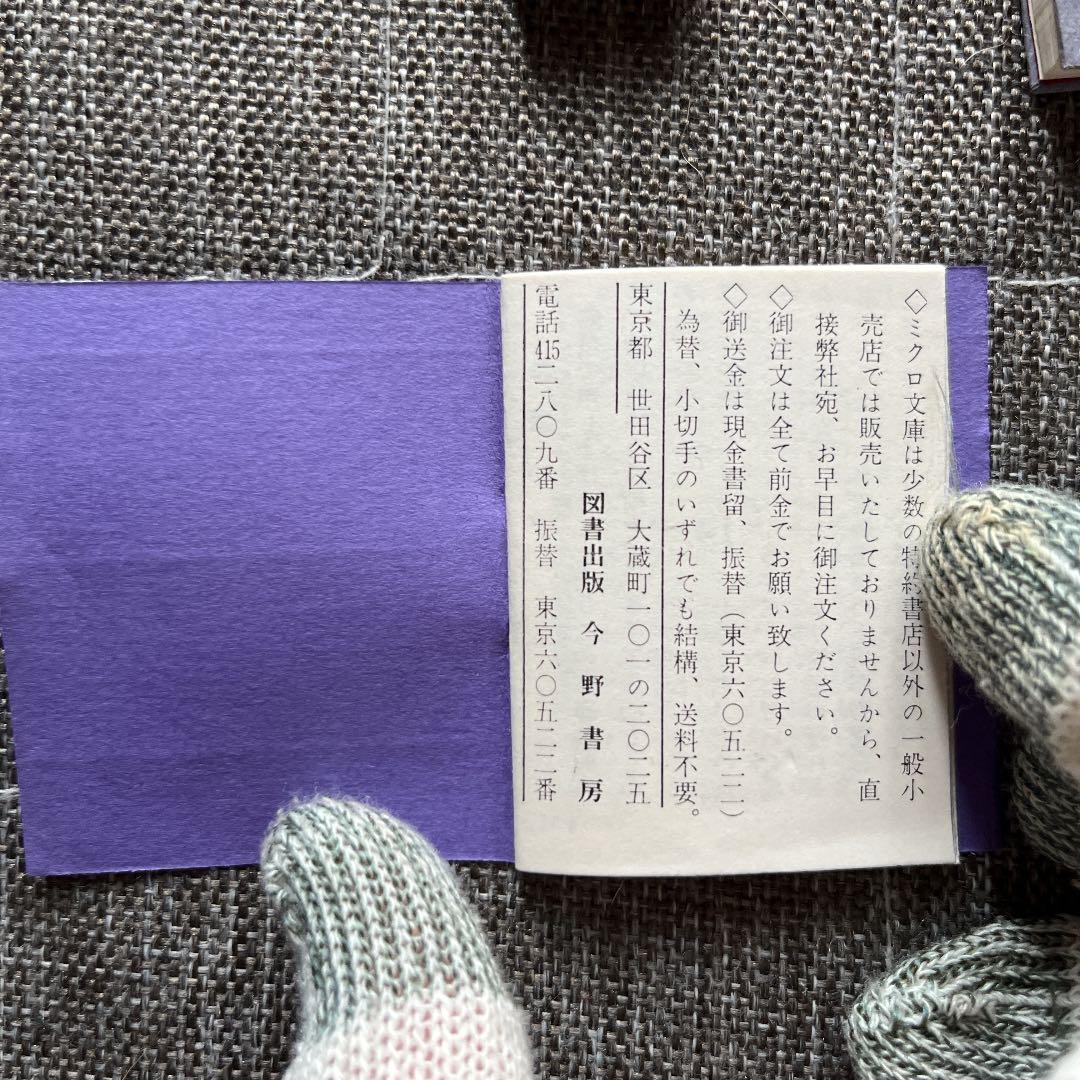 ◇ミクロ文庫は少数の特約書店以外の一般小
売店では販売いたしておりませんから、直
接弊社宛、お早目に御注文ください。
◇御注文は全て前金でお願い致します。
◇御送金は現金書留、振替（東京六〇五二二）
為替、小切手のいずれでも結構、送料不要。
東京都 世田谷区 大蔵町一〇一の二〇二五
図書出版 今野書房
電話415二八〇九番 振替 東京六〇五二二番